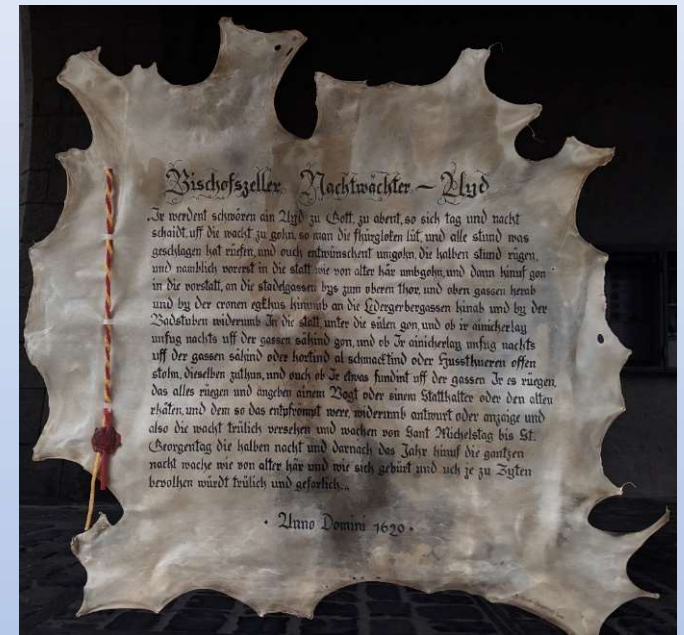 Bischofszeller Nachtwächter – Ayd
Ir werdent schwören ain Ayd zu Gott, zu abent, so sich tag und nacht
schaidt, uff die wacht zu gohn, so man die fhürgloken lüt, und alle stund was
geschlagen hat rüefen, und ouch entwünschent umgohn, die halben stund rügen,
und namblich vorerst in die statt wie von alter här umbgohn, und dann hinuf gon
in die vorstatt, an die stadelgassen bys zum oberen thor, und oben gassen herab
und by der cronen egkhus hinumb an die Ledergerbergassen hinab und by der
Badstuben widerumb In die statt, unter die sülen gon, und ob ir ainicherlay
unfug nachts uff der gassen sähind gon, und ob Ir ainicherlay unfug nachts
uff der gassen sähind oder hortind al schmacktind oder Hussthueren offen
stohn, dieselben zuthun, und ouch ob Ir etwas fundint uff der gassen Ir es rüegen,
das alles rüegen und angeben ainem Vogt oder sinem Statthalter oder den alten
rhäten, und dem so das entpfrompt were, widerumb antwurt oder anzaige und
also die wacht trülich versehen und wachen von Sant Michelstag bis St.
Georgentag die halben nacht und darnach das Jahr hinuf die gantzen
nacht wache wie von alter här und wie sich gebürt und uch je zu Zyten
bevolhen würdt trülich und gefarlich...
· Anno Domini 1620 ·